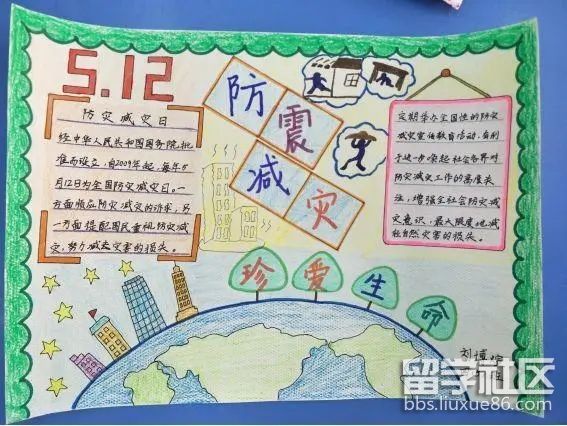 5.12
防灾减灾日
经中华人民共和国国务院批
准而设立,自2009年起,每年5
月12日为全国防灾减灾日。一
方面顺应防灾减灾的诉求,另
一方面提配国民重视防灾减
灾,努力减去灾害的损失。
防震
减灾
定期举办全国性的防灾
减灾宣传教育活动,有利
于进一步唤起社会各界对
防灾减灾工作的高度关
注,增强全社会防灾减
灾意识,最大限度地减
轻自然灾害的损失。
珍爱生命
刘
留学社区
bbs.liuxue86.com